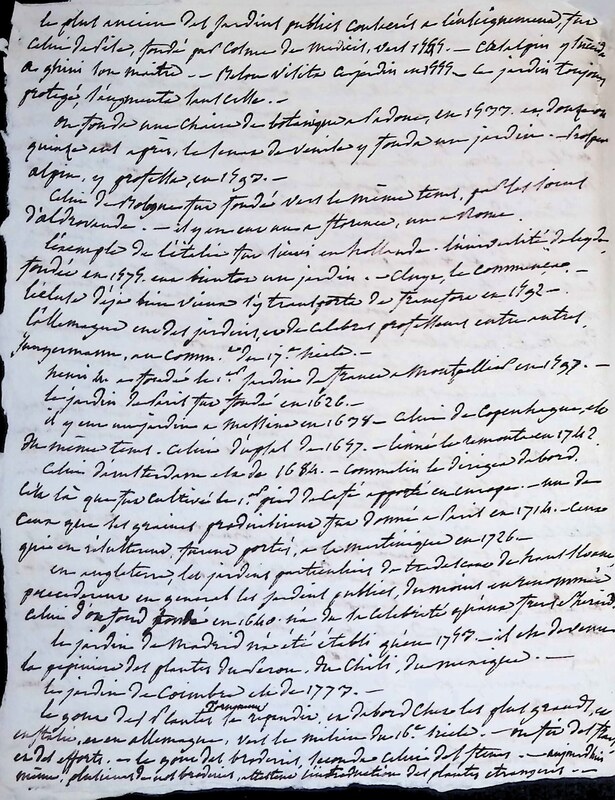 le plus ancien des jardins publics consacrés a l'enseignement, fut
celui de Pise, fondé par Cosme de Medicis, vers 1543. — Cesalpin y
a ghini son maître. — Belon visita ce jardin en 1555. Ce jardin toujours
protégé, s'augmente sans cesse. —
on fonda une chaire de botanique a Padoue, en 1533. et
quinze ans apres, le senat de venise y fonda un jardin. — Prosper
alpin, y professa, en 1593. —
Celui de Bologne fut fondé vers le même tems, par les soins
d'aldrovande. — il y en eut un a florence, un a Rome.
l'exemple de l'italie fut suivi en hollande. l'université de leyde
fondée en 1575. eut bientôt un jardin. — Cluyt, le commença. —
l'ecluse déja bien vieux s'y transporta de francfort en 1592 —
l'allemagne eut des jardins, et de celebres professeurs entre autres,
Jungermann, au comm.t du 17.e siecle. —
henri IV a fondé le 1.er jardin de france a Montpellier en 1597. —
le jardin de Paris fut fondé en 1626. —
il y eut un jardin a messine en 1638 — Celui de Copenhague, est
du même tems. Celui d'upsal de 1657. — linné le remonta en 1742
Celui d'amsterdam est de 1684. — Commelin le dirigea d'abord.
C'est là que fut cultivé le 1.er pied de café apporté en europe. — un de
ceux que ses graines produisirent fut donné a Paris en 1714. — Ceux
qui en résulterent, furent portés, a la martinique en 1726. —
en angleterre les jardins particuliers de tradescant de hans sloane
précéderent en général les jardins publics, du moins en renommée
Celui d'oxford fondé en 1640. n'a de la célébrité qu'aux
le jardin de Madrid n'a été établi qu'en 1753. — il est devenu
la pepiniere des plantes du Perou, du Chili, du mexique. —
le jardin de Coimbre est de 1773. —
le gout des Plantes se repandit, et d'abord chez les plus grands, en
italie, et en allemagne, vers le milieu du 16.e siecle. — on fit des
et des efforts. — le gout des broderies, seconda celui des fleurs. — aujourd'hui
même, plusieurs de nos broderies, attestent l'introduction des plantes etrangeres —